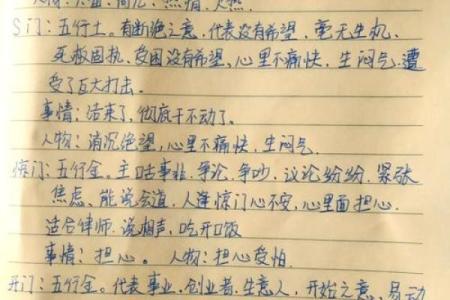 人物:    热情、火热
S门:五行土。有断绝之意,代表没有希望,毫无生机,
死板固执、受困没有希望、心里不痛快,生闷气.遭
受了巨大打击。
事情:结束了,彻底干不动了。
人物:消沉绝望,心里不痛快,生闷气
惊门:五行金。主咕事非、争论、争吵、议论纷纷.紧张
焦虑、能说会道,人逢惊门心不安,心里面担心.
适合律师.说相声.吃开口饭
事情:担心。 人物:担心受怕.
开门:五行金。代表事业,创业者,生意人,开始之意.易动